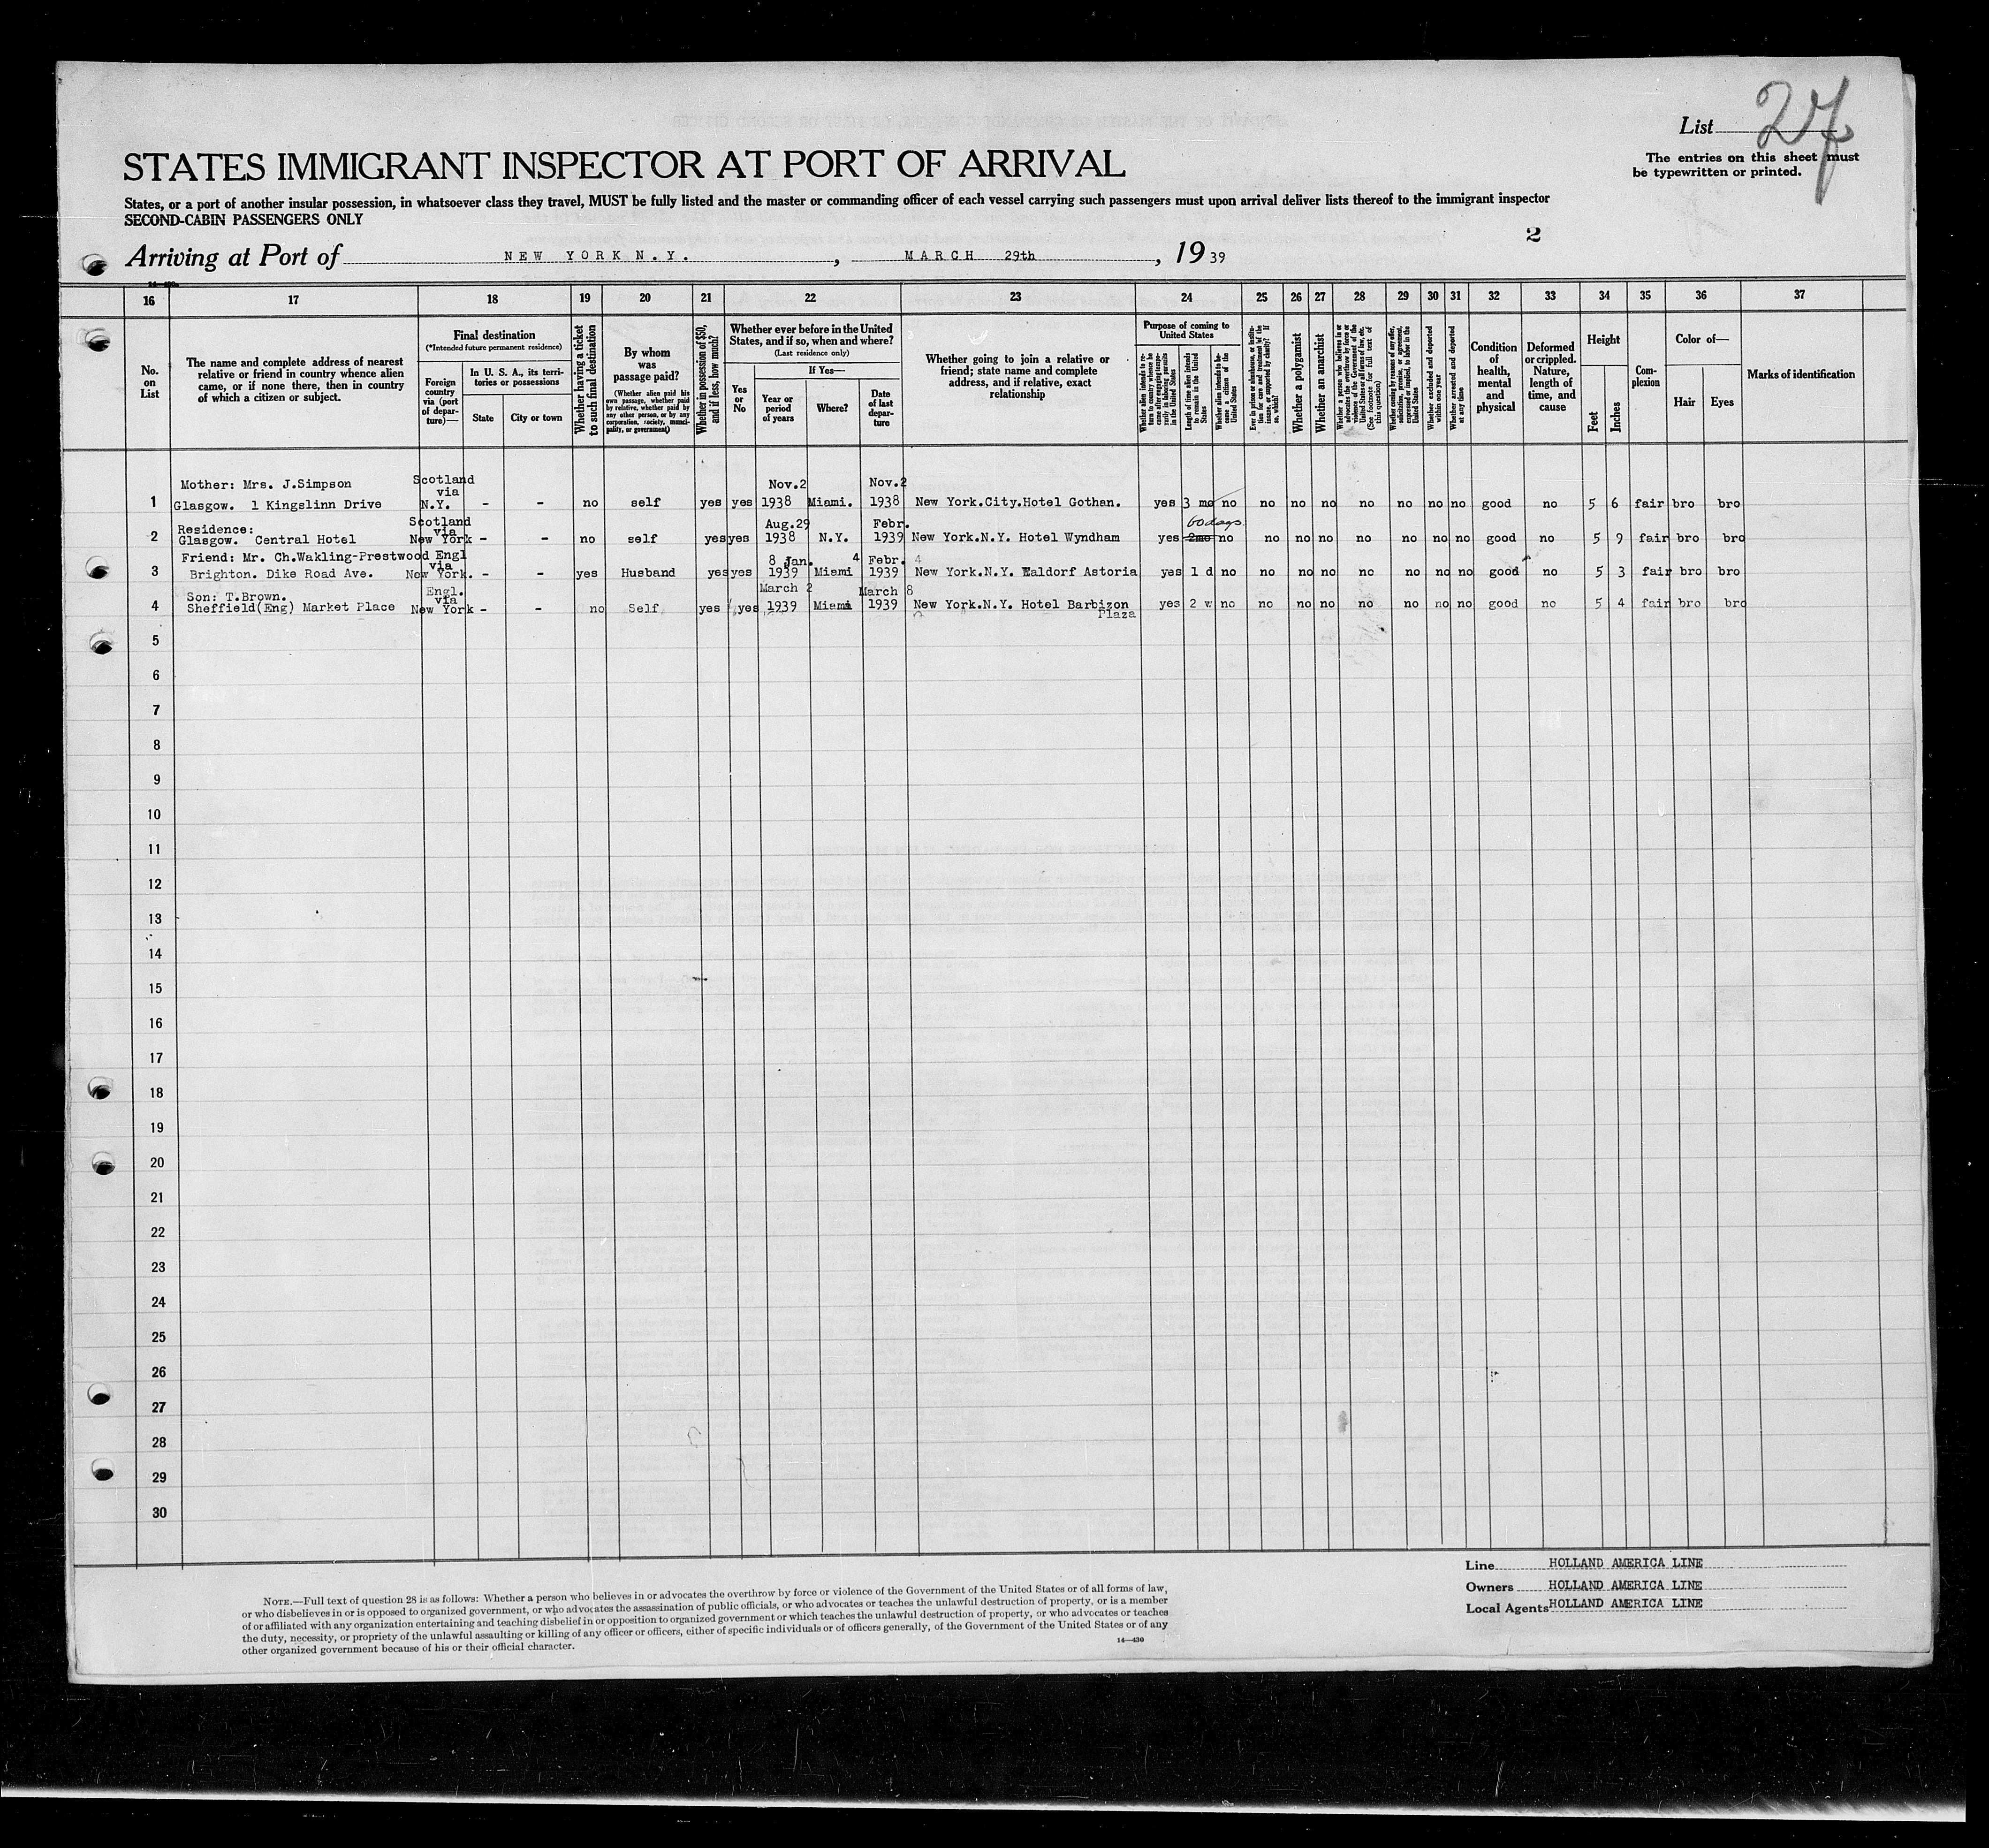 List 27
The entries on this sheet must
be typewritten or printed.
STATES IMMIGRANT INSPECTOR AT PORT OF ARRIVAL
States, or a port of another insular possession, in whatsoever class they travel, MUST be fully listed and the master or commanding officer of each vessel carrying such passengers must upon arrival deliver lists thereof to the immigrant inspector
SECOND-CABIN PASSENGERS ONLY
2
Arriving at Port of NEW YORK N.Y. , MARCH 29th , 19 39
16 17 18 19 20 21 22 23 24 25 26 27 28 29 30 31 32 33 34 35 36 37
No.
on
List
The name and complete address of nearest
relative or friend in country whence alien
came, or if none there, then in country
of which a citizen or subject.
Final destination
(*Intended future permanent residence)
Foreign
country
via (port
of depar-
ture)—
In U. S. A., its terri-
tories or possessions
State
City or town
Whether having a ticket
to such final destination
By whom
was
passage paid?
(Whether alien paid his
own passage, whether paid
by relative, whether paid by
any other person, or by any
corporation, society, munici-
pality, or government)
Whether in possession of $50,
and if less, how much?
Whether ever before in the United
States, and if so, when and where?
(Last residence only)
Yes
or
No
If Yes—
Year or
period
of years
Where?
Date
of last
depar-
ture
Whether going to join a relative or
friend; state name and complete
address, and if relative, exact
relationship
Purpose of coming to
United States
Whether alien intends to re-
turn to country whence he
came after engaging tempo-
rarily in laboring pursuits
in the United States
Length of time alien intends
to remain in the United
States
Whether alien intends to be-
come a citizen of the
United States
Ever in prison or almshouse, or institu-
tion for care and treatment of the
insane, or supported by charity? If
so, which?
Whether a polygamist
Whether an anarchist
Whether a person who believes in or
advocates the overthrow by force or
violence of the Government of the
United States or all forms of law, etc.
(See footnote for full text of
this question)
Whether coming by reason of any offer,
solicitation, promise, or agreement,
expressed or implied, to labor in the
United States
Whether excluded and deported
within one year
Whether arrested and deported
at any time
Condition
of
health,
mental
and
physical
Deformed
or crippled.
Nature,
length of
time, and
cause
Height
Feet
Inches
Com-
plexion
Color of—
Hair
Eyes
Marks of identification
Mother: Mrs. J.Simpson Scotland via Nov.2 Nov.2
1 Glasgow. 1 Kingslinn Drive N.Y. - - no self yes yes 1938 Miami. 1938 New York.City.Hotel Gothan. yes 3 mo no no no no no no no no good no 5 6 fair bro bro
Residence: Scotland via Aug.29 Febr. 60 days
2 Glasgow. Central Hotel New York - - no self yes yes 1938 N.Y. 1939 New York.N.Y. Hotel Wyndham yes 2mo no no no no no no no no good no 5 9 fair bro bro
Friend: Mr. Ch.Wakling-Prestwood Engl via 8 Jan. 4 Febr. 4
3 Brighton. Dike Road Ave. New York. - - yes Husband yes yes 1939 Miami 1939 New York.N.Y. Waldorf Astoria yes 1 d no no no no no no no no good no 5 3 fair bro bro
Son: T.Brown. Engl. via March 2 March 8
4 Sheffield(Eng) Market Place New York - - no Self yes yes 1939 Miami 1939 New York.N.Y. Hotel Barbizon yes 2 w no no no no no no no no good no 5 4 fair bro bro
Plaza
5
6
7
8
9
10
11
12
13
14
15
16
17
18
19
20
21
22
23
24
25
26
27
28
29
30
Line HOLLAND AMERICA LINE
Owners HOLLAND AMERICA LINE
Local Agents HOLLAND AMERICA LINE
NOTE.—Full text of question 28 is as follows: Whether a person who believes in or advocates the overthrow by force or violence of the Government of the United States or of all forms of law,
or who disbelieves in or is opposed to organized government, or who advocates the assassination of public officials, or who advocates or teaches the unlawful destruction of property, or is a member
of or affiliated with any organization entertaining and teaching disbelief in or opposition to organized government or which teaches the unlawful destruction of property, or who advocates or teaches
the duty, necessity, or propriety of the unlawful assaulting or killing of any officer or officers, either of specific individuals or of officers generally, of the Government of the United States or of any
other organized government because of his or their official character.
14—430